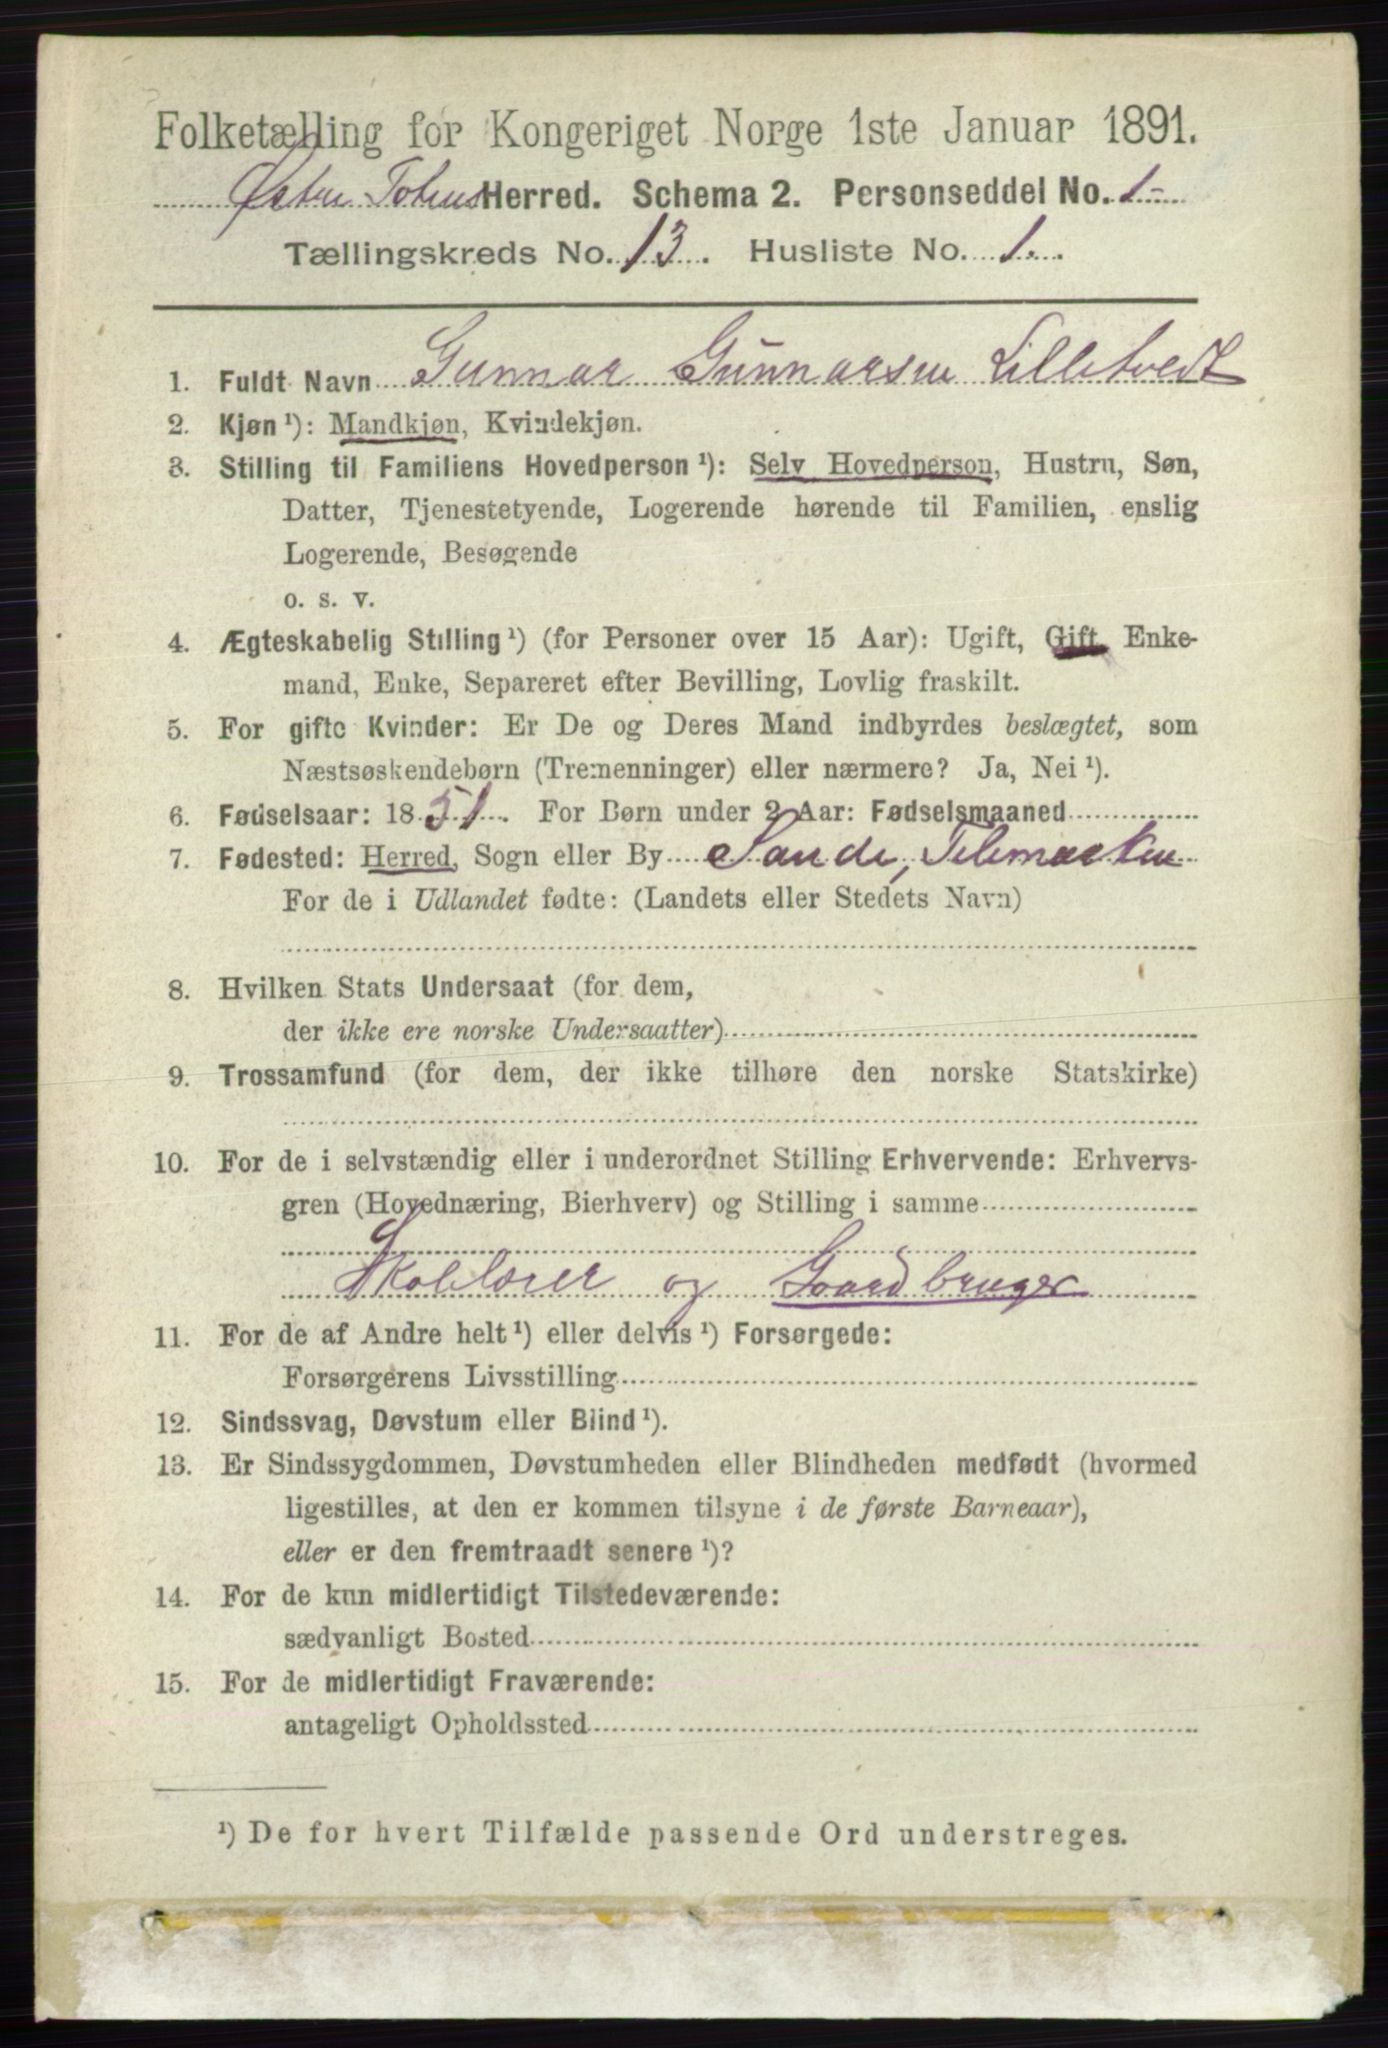 Folketælling for Kongeriget Norge 1ste Januar 1891.
Østre Totens Herred. Schema 2. Personseddel No. 1
Tællingskreds No. 13. Husliste No. 1.
1. Fuldt Navn Gunnar Gunnarsen Lilletvedt
2. Kjøn ¹): Mandkjøn, Kvindekjøn.
3. Stilling til Familiens Hovedperson ¹): Selv Hovedperson, Hustru, Søn,
Datter, Tjenestetyende, Logerende hørende til Familien, enslig
Logerende, Besøgende
o. s. v.
4. Ægteskabelig Stilling ¹) (for Personer over 15 Aar): Ugift, Gift, Enke-
mand, Enke, Separeret efter Bevilling, Lovlig fraskilt.
5. For gifte Kvinder: Er De og Deres Mand indbyrdes beslægtet, som
Næstsøskendebørn (Tremenninger) eller nærmere? Ja, Nei ¹).
6. Fødselsaar: 1851. For Børn under 2 Aar: Fødselsmaaned
7. Fødested: Herred, Sogn eller By Sande, Telemarken
For de i Udlandet fødte: (Landets eller Stedets Navn)
8. Hvilken Stats Undersaat (for dem,
der ikke ere norske Undersaatter)
9. Trossamfund (for dem, der ikke tilhøre den norske Statskirke)
10. For de i selvstændig eller i underordnet Stilling Erhvervende: Erhvervs-
gren (Hovednæring, Bierhverv) og Stilling i samme
Skolelærer og Gaardbruger
11. For de af Andre helt ¹) eller delvis ¹) Forsørgede:
Forsørgerens Livsstilling
12. Sindssvag, Døvstum eller Blind ¹).
13. Er Sindssygdommen, Døvstumheden eller Blindheden medfødt (hvormed
ligestilles, at den er kommen tilsyne i de første Barneaar),
eller er den fremtraadt senere ¹)?
14. For de kun midlertidigt Tilstedeværende:
sædvanligt Bosted
15. For de midlertidigt Fraværende:
antageligt Opholdssted
¹) De for hvert Tilfælde passende Ord understreges.